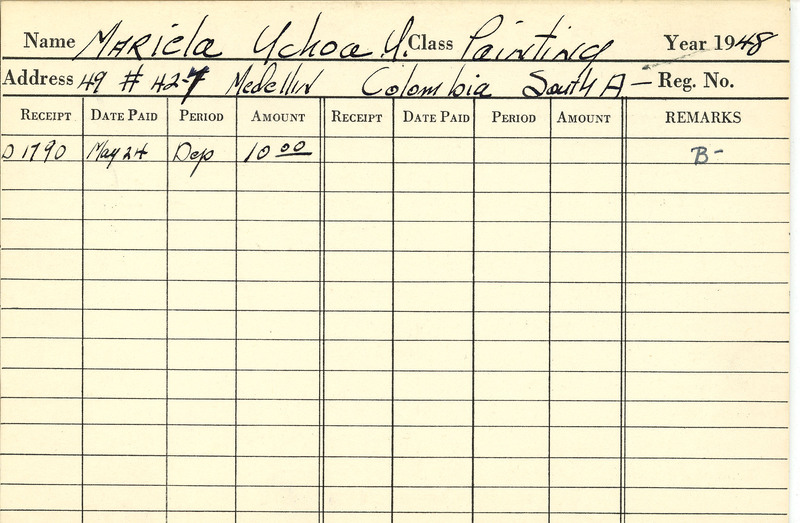 Name Mariela Ychoa Y. Class Painting Year 1948
Address 49 # 42-7 Medellin Colombia South A— Reg. No.
RECEIPT DATE PAID PERIOD AMOUNT RECEIPT DATE PAID PERIOD AMOUNT REMARKS
D 1790 May 24 Dep 10 00 B-